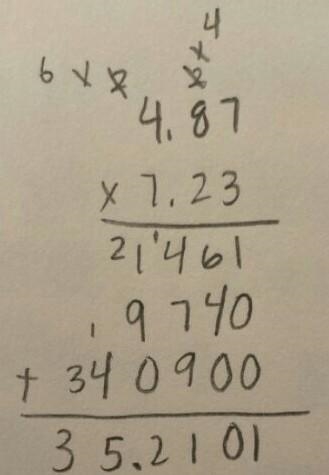 4
6
4.87
x 7.23
21461
1 9740
+ 340900
35.2101